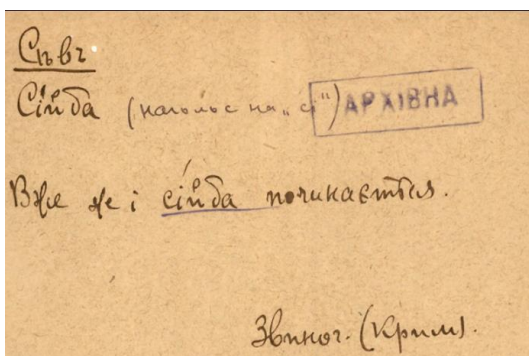 Сѣвъ
Сі́йба (наголос на „сі") АРХІВНА
Вже же і сі́йба починається.
Звиног. (Крим).